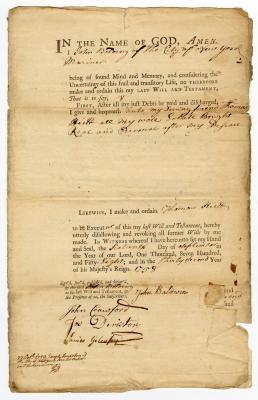 IN THE NAME OF GOD, AMEN.
I John Baldwin of the City of New York
Mariner
being of sound Mind and Memory, and considering the
Uncertainty of this frail and transitory Life, DO THEREFORE
make and ordain this my LAST WILL AND TESTAMENT,
That is to say,
FIRST, After all my just Debts be paid and discharged,
I give and bequeath unto my loving Thomas
all my
Real and Personal after my
LIKEWISE, I make and ordain Thomas
to be Execut of this my last Will and Testament, hereby
utterly disallowing and revoking all former Wills by me
made. IN WITNESS whereof I have hereunto set my Hand
and Seal, the Day of September in
the Year of our Lord, One Thousand, Seven Hundred,
and Fifty-Eight, and in the Thirty second Year
of his Majesty's Reign. 1758
as his last Will and Testament, in the
Presence of us, the Subscribers.
John Baldwin
John Crawford
Jas
James